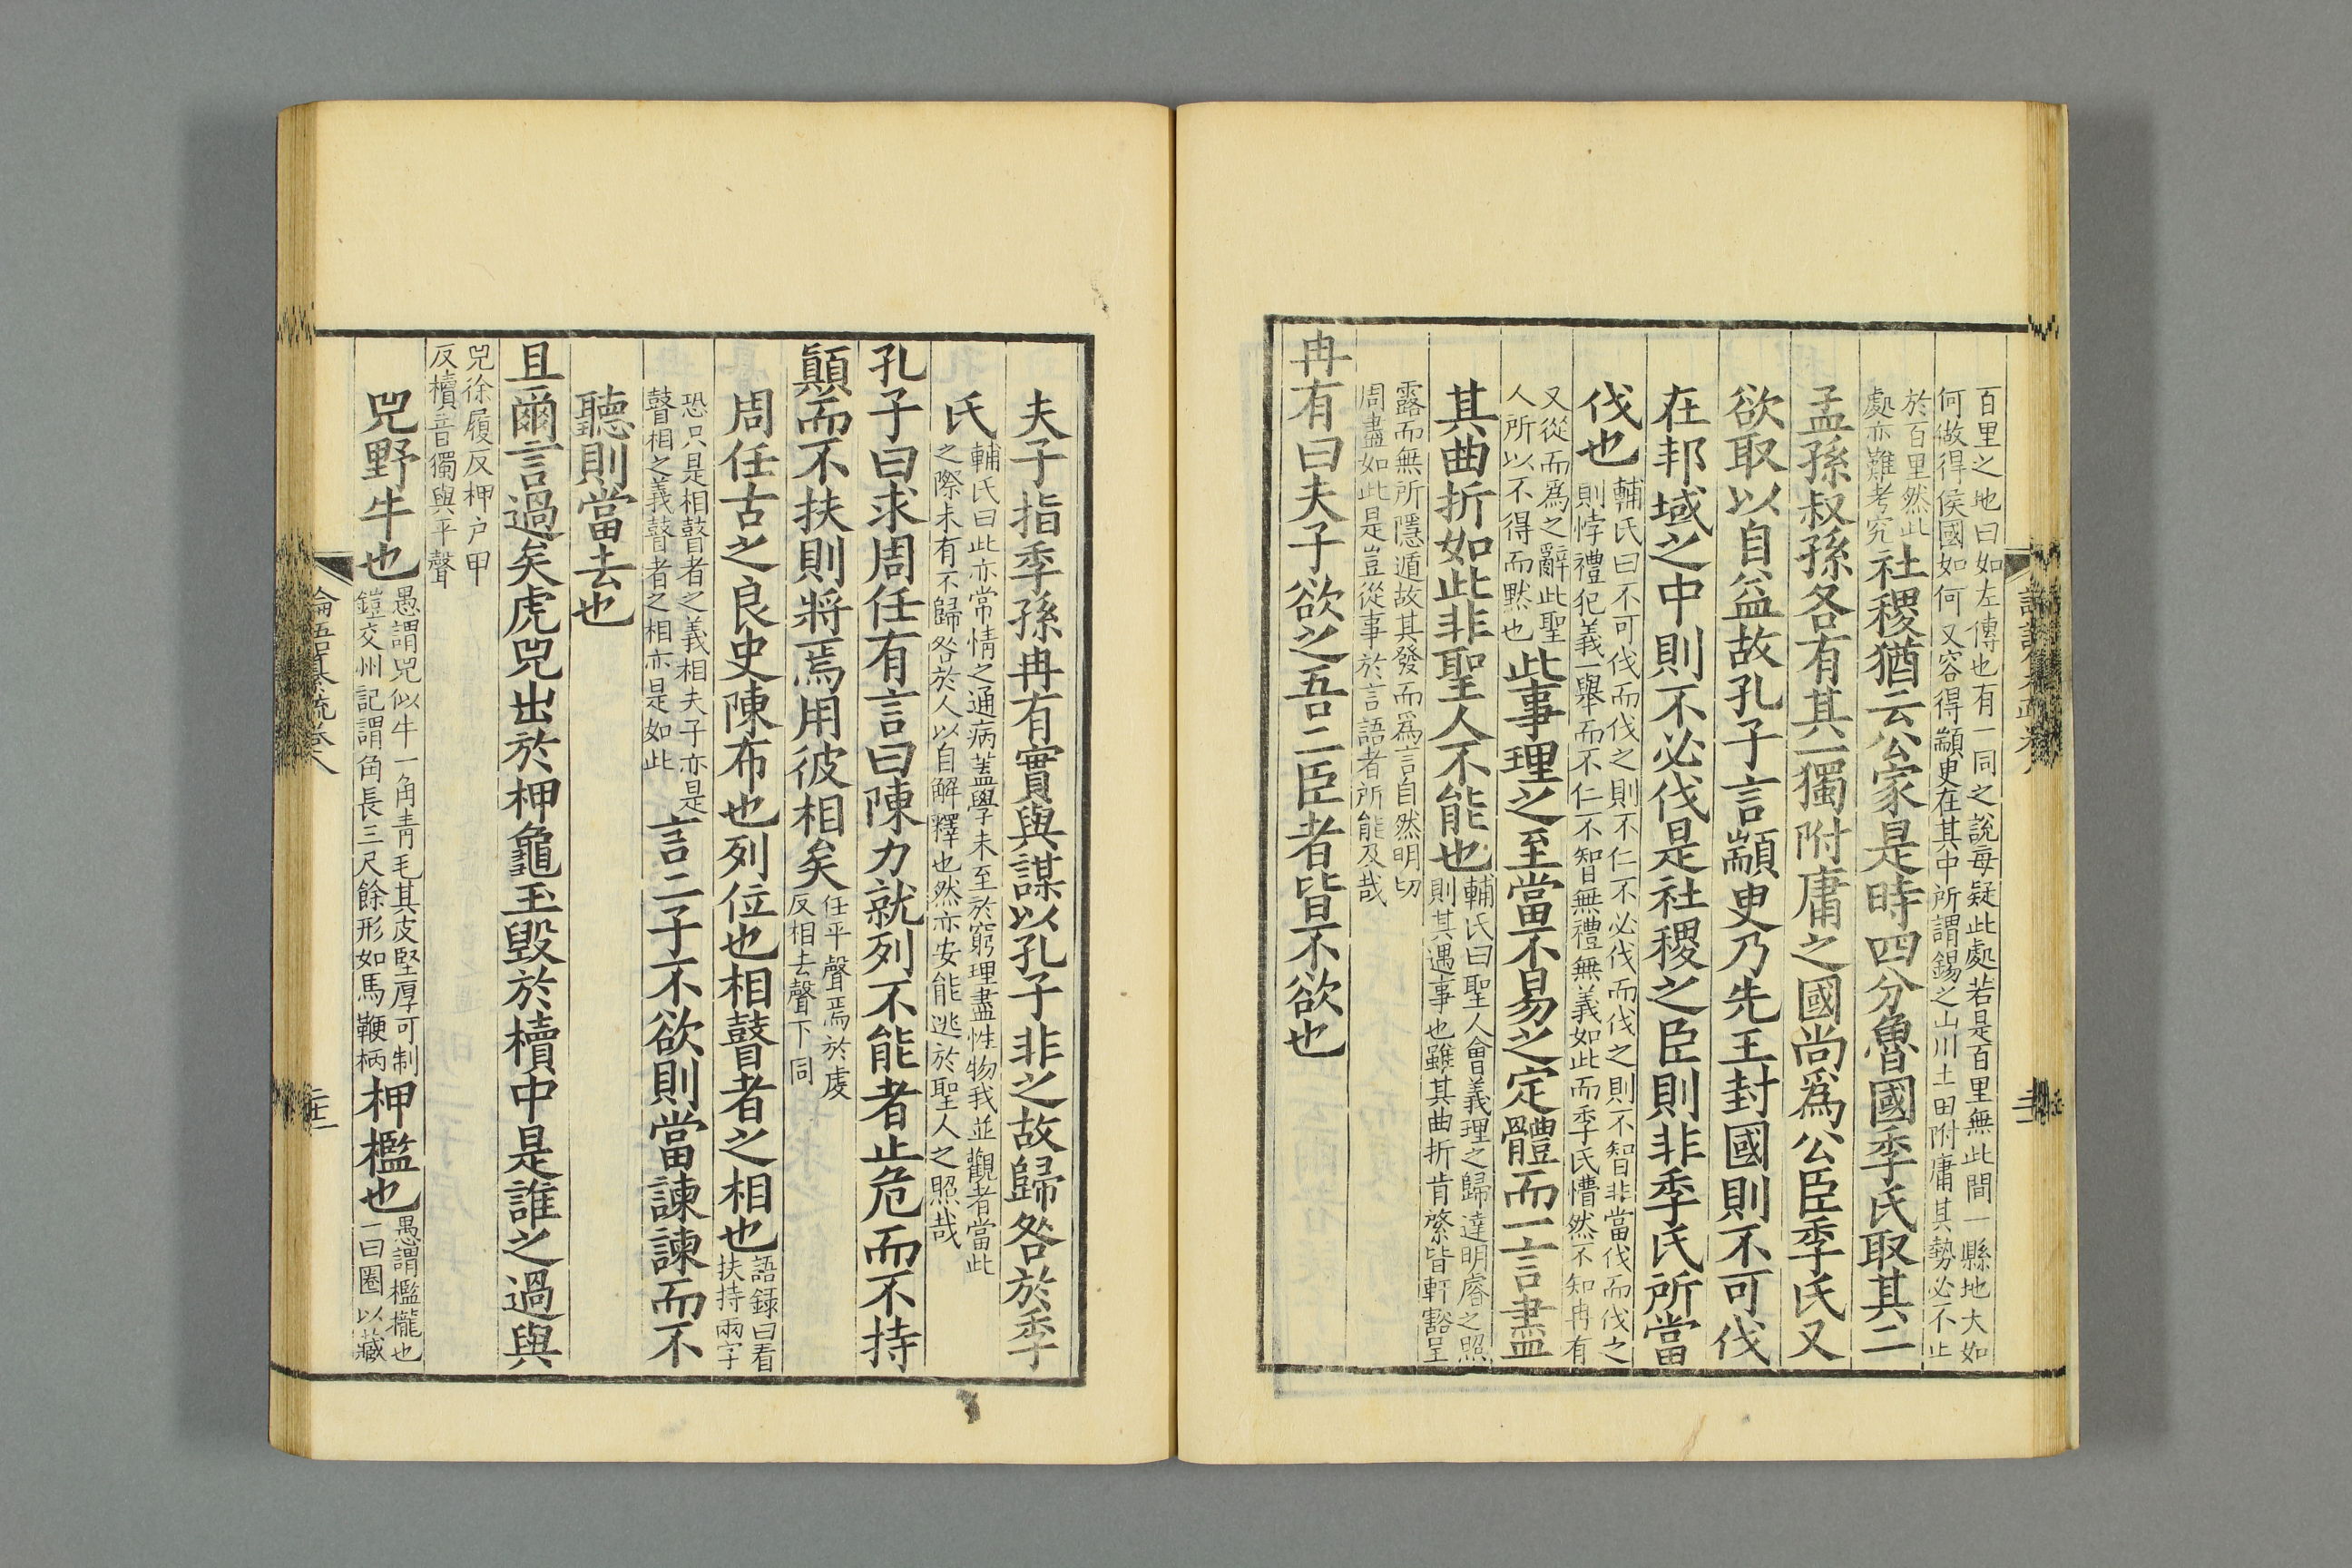 百里之地曰如左傳也有一同之說每疑此處若是百里無此間一縣地大如
何做得侯國如何又容得顓臾在其中所謂錫之山川土田附庸其勢必不止
於百里然此
處亦難考究
社稷猶云公家是時四分魯國季氏取其二
孟孫叔孫各有其一獨附庸之國尚爲公臣季氏又
欲取以自益故孔子言顓臾乃先王封國則不可伐
在邦域之中則不必伐是社稷之臣則非季氏所當
伐也
輔氏曰不可伐而伐之則不仁不必伐而伐之則不智非當伐而伐之
則悖禮犯義一舉而不仁不智無禮無義如此而季氏懵然不知冉有
又從而爲之辭此聖
人所以不得而默也
此事理之至當不易之定體而一言盡
其曲折如此非聖人不能也
輔氏曰聖人會義理之歸達明睿之照
則其遇事也雖其曲折肯綮皆軒豁呈
露而無所隱遁故其發而爲言自然明切
周盡如此是豈從事於言語者所能及哉
冉有曰夫子欲之吾二臣者皆不欲也
夫子指季孫冉有實與謀以孔子非之故歸咎於季
氏
輔氏曰此亦常情之通病蓋學未至於窮理盡性物我並觀者當此
之際未有不歸咎於人以自解釋也然亦安能逃於聖人之照哉
孔子曰求周任有言曰陳力就列不能者止危而不持
顛而不扶則將焉用彼相矣
任平聲焉於虔
反相去聲下同
周任古之良史陳布也列位也相瞽者之相也
語錄曰看
扶持兩字
恐只是相瞽者之義相夫子亦是
瞽相之義瞽者之相亦是如此
言二子不欲則當諫諫而不
聽則當去也
且爾言過矣虎兕出於柙龜玉毀於櫝中是誰之過與
兕徐履反柙户甲
反櫝音獨與平聲
兕野牛也
愚謂兕似牛一角青毛其皮堅厚可制
鎧交州記謂角長三尺餘形如馬鞭柄
柙檻也
愚謂檻櫳也
一曰圈以藏
論語纂疏卷八